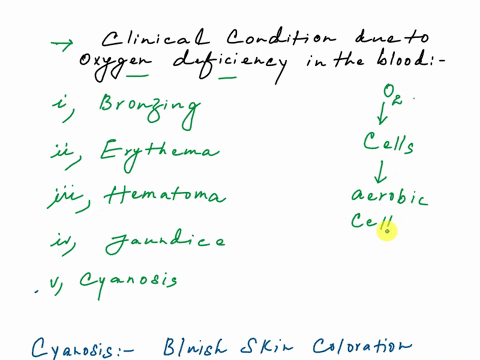 → Clinical Condition due to
Oxygen deficiency in the blood:-
i, Bronzing
ii, Erythema
iii, Hematoma
iv, Jaundice
v, Cyanosis
O2
↓
Cells
↓
aerobic
Cell
Cyanosis:- Bluish Skin Coloration